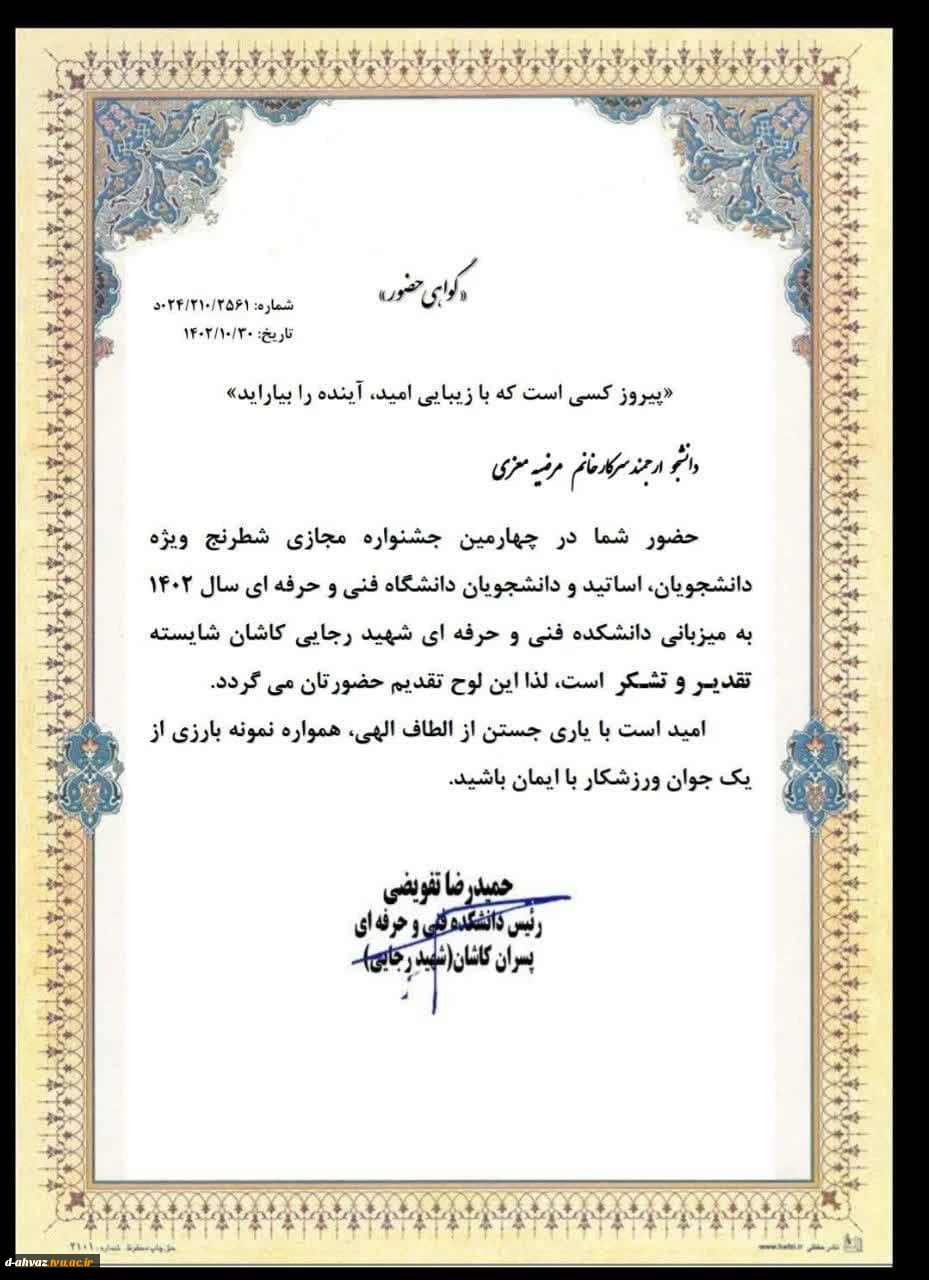 «گواهی حضور»
شماره: ۰۲۴/۲۱۰/۲۵۶۱د
تاریخ: ۱۴۰۲/۱۰/۳۰
«پیروز کسی است که با زیبایی امید، آینده را بیاراید»
دانشجو ارجمند سرکار خانم مرضیه معزی
حضور شما در چهارمین جشنواره مجازی شطرنج ویژه
دانشجویان، اساتید و دانشجویان دانشگاه فنی و حرفه ای سال ۱۴۰۲
به میزبانی دانشکده فنی و حرفه ای شهید رجایی کاشان شایسته
تقدیـر و تشـکر است، لذا این لوح تقدیم حضورتان می گردد.
امید است با یاری جستن از الطاف الهی، همواره نمونه بارزی از
یک جوان ورزشکار با ایمان باشید.
حمیدرضا تفویضی
رئیس دانشکده فنی و حرفه ای
پسران کاشان(شهید رجایی)
حق چاپ محفوظ. شماره: ۲۱۰۱
d-ahvaz.tvu.ac.ir